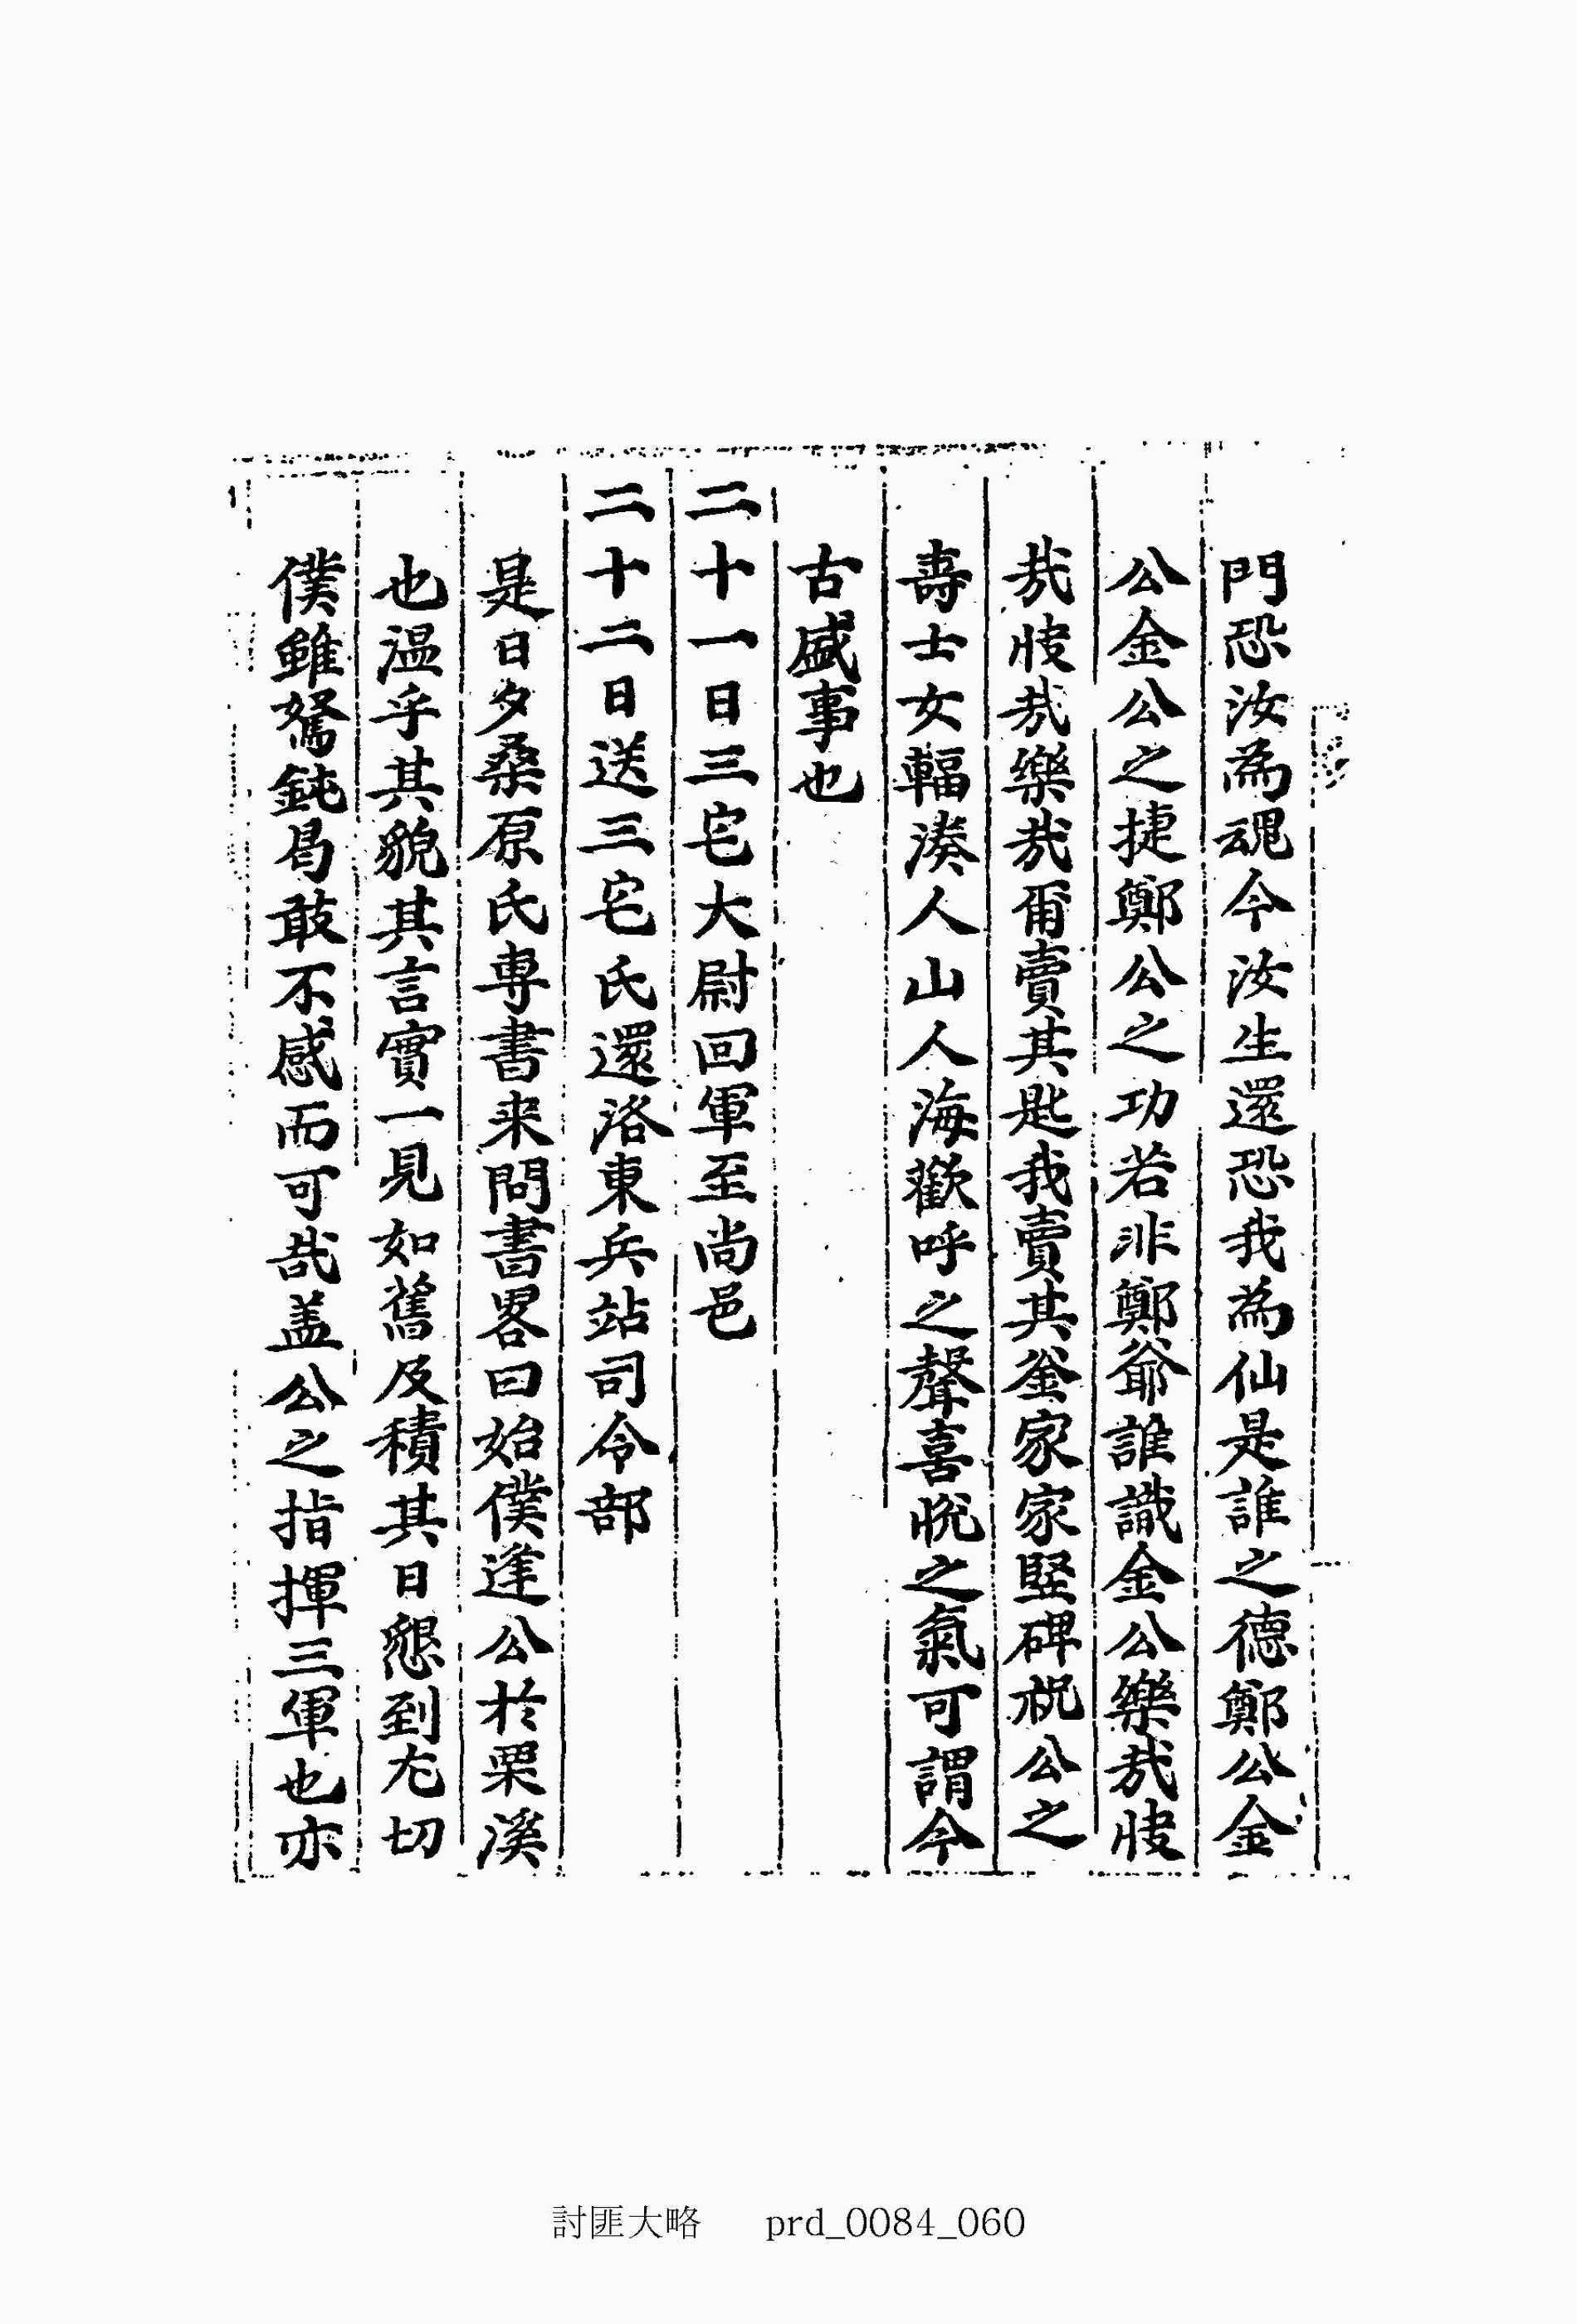 門恐汝為魂今汝生還恐我為仙是誰之德鄭公金
公金公之捷鄭公之功若非鄭爺誰識金公樂哉快
哉快哉樂哉爾賣其匙我賣其釜家家竪碑祝公之
壽士女輻湊人山人海歡呼之聲喜悅之氣可謂今
古盛事也
二十一日三宅大尉回軍至尚邑
二十二日送三宅氏還洛東兵站司令部
是日夕桑原氏專書来問書畧曰始僕逢公於栗溪
也温乎其貌其言實一見如舊及積其日懇到尤切
僕雖駑鈍曷敢不感而可哉盖公之指揮三軍也亦
討匪大略 prd_0084_060